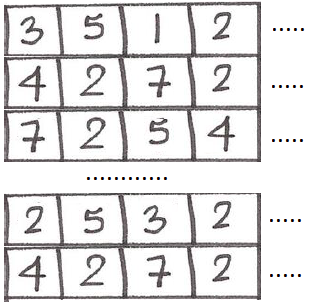 3 5 1 2 .....
4 2 7 2 .....
7 2 5 4 .....
............
2 5 3 2 .....
4 2 7 2 .....